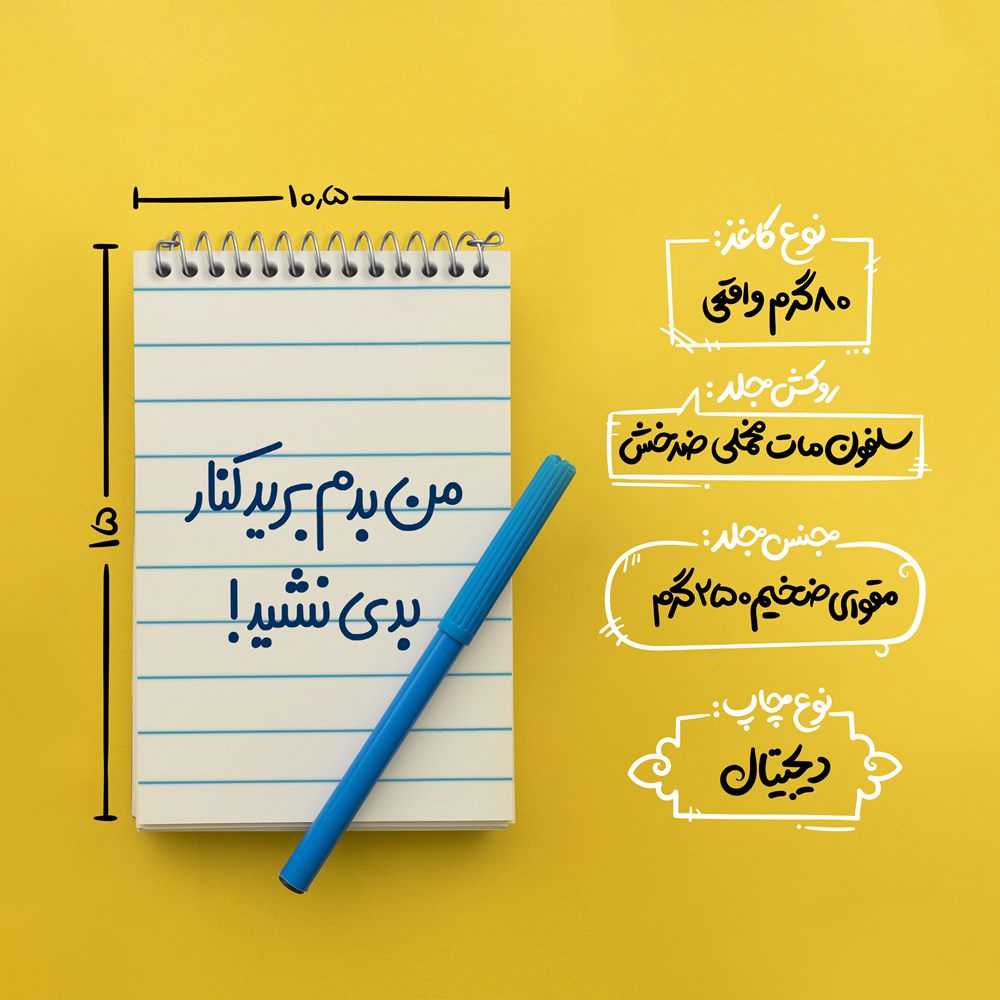 ۱۰٫۵
۱۵
من بدم برید کنار
بدی نشید!
نوع کاغذ:
۸۰گرم واقعی
روکش جلد:
سلفون مات مخملی ضدخش
جنس جلد:
مقوای ضخیم ۲۵۰گرم
نوع چاپ:
دیجیتال